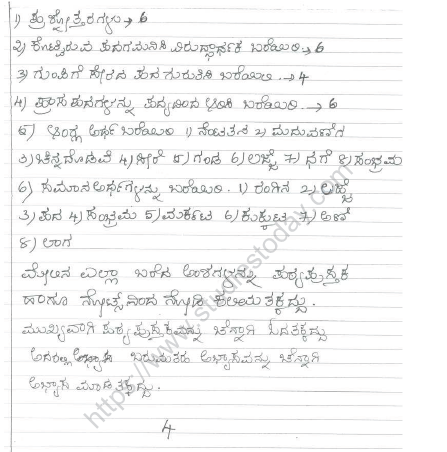 ೧) ಪ್ರಶ್ನೋತ್ತರಗಳು → 6
೨) ಕೊಟ್ಟಿರುವ ಪದಗಮನಿಸಿ ವಿರುದ್ಧಾರ್ಥಕ ಬರೆಯಿರಿ → 6
೩) ಗುಂಪಿಗೆ ಸೇರದ ಪದ ಗುರುತಿಸಿ ಬರೆಯಿರಿ → 4
೪) ಪ್ರಾಸ ಪದಗಳನ್ನು ಪದ್ಯದಿಂದ ಆರಿಸಿ ಬರೆಯಿರಿ → 6
೫) ಆಂಗ್ಲ ಅರ್ಥ ಬರೆಯಿರಿ ೧) ನೆಂಟತನ ೨) ಮದುವಣಿಗ
೩) ಚಿನ್ನದೊಡವೆ ೪) ಸೀರೆ ೫) ಗಂಡ ೬) ಲಜ್ಜೆ ೭) ಧಗೆ ೮) ಸಂಭ್ರಮ
೬) ಸಮಾನ ಅರ್ಥಗಳನ್ನು ಬರೆಯಿರಿ. ೧) ರಂಗಿನ ೨) ಲಜ್ಜೆ
೩) ಪದ ೪) ಸಂಭ್ರಮ ೫) ಮರ್ಕಟ ೬) ಕುಕ್ಕುಟ ೭) ಅಣಿ
೮) ಲಾಗ
ಮೇಲಿನ ಎಲ್ಲಾ ಬರೆದ ಅಂಶಗಳನ್ನು ಪಠ್ಯಪುಸ್ತಕ
ಹಾಗೂ ನೋಟ್ಸ್ ನಿಂದ ನೋಡಿ ಕಲಿಯತಕ್ಕದ್ದು.
ಮುಖ್ಯವಾಗಿ ಪಠ್ಯಪುಸ್ತಕವನ್ನು ಚೆನ್ನಾಗಿ ಓದತಕ್ಕದ್ದು
ಅದರಲ್ಲಿ ಬರುವಂತಹ ಅಭ್ಯಾಸವನ್ನು ಚೆನ್ನಾಗಿ
ಅಭ್ಯಾಸ ಮಾಡತಕ್ಕದ್ದು.
4
https://www.studiestoday.com